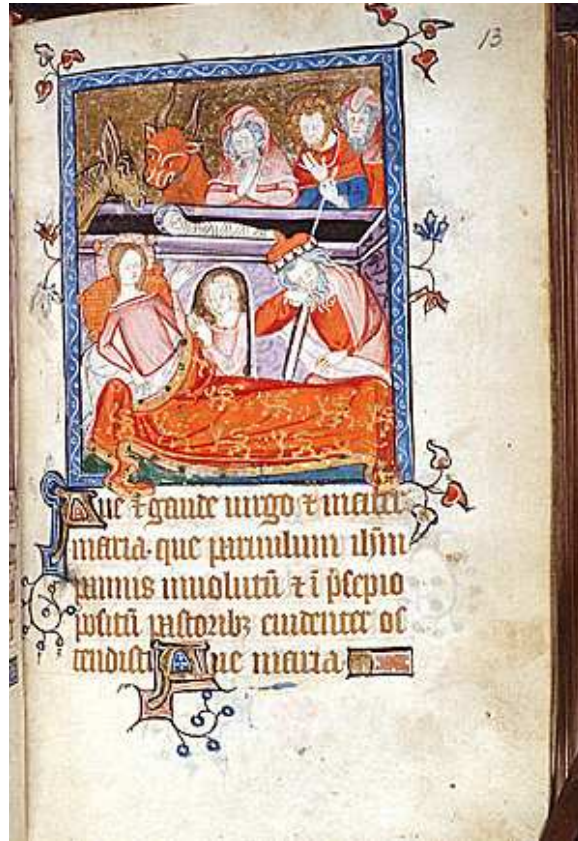 13
Aue ⁊ gaude uirgo ⁊ mater
maria. que paruulum ihm̄
pannis inuolutū ⁊ ī p̄sepio
positū pastoribꝫ euidenter os
tendisti Aue maria